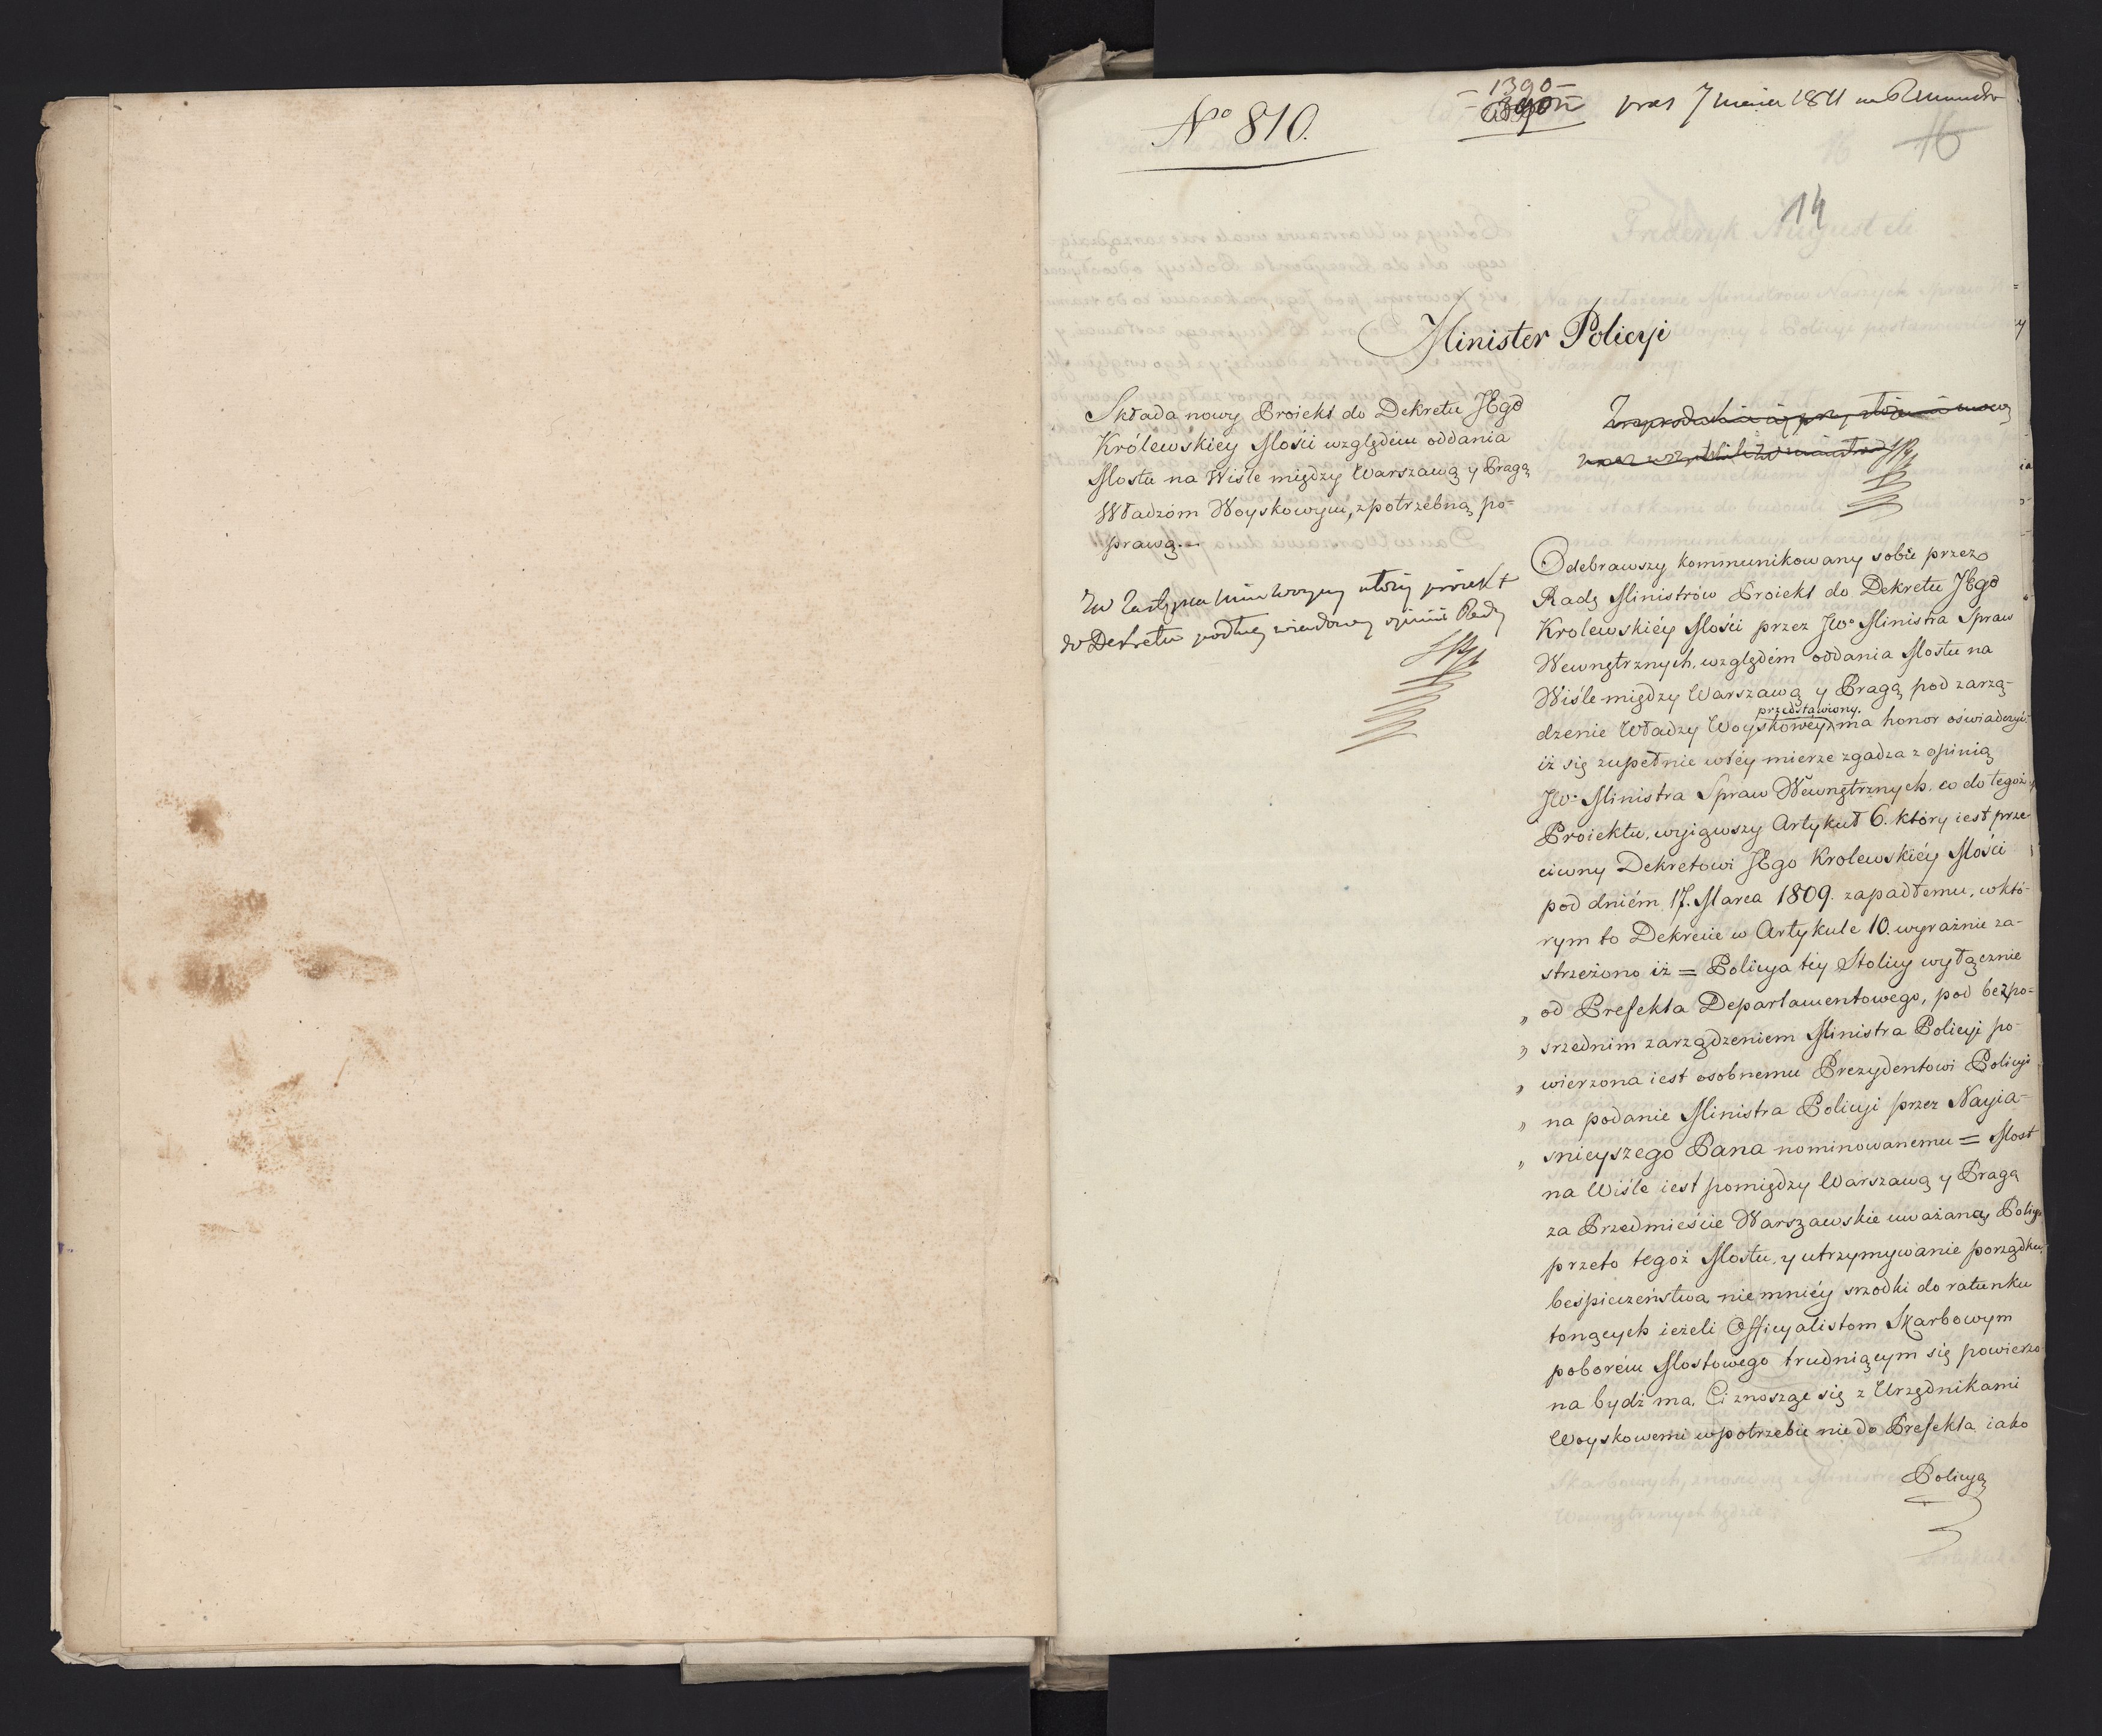 Nº 810.
- 1390 -
16
14
Minister Policyi
Składa nowy Proiekt do Dekretu JEgo
Królewskiey Mości względem oddania
Mostu na Wiśle między Warszawą y Pragą
Władzom Woyskowym, z potrzebną po=
prawą.
do Dekretu podług
Odebrawszy kommunikowany sobie przez
Radę Ministrów Proiekt do Dekretu JEgo
Krolewskiéy Mości przez JWo Ministra Spraw
Wewnętrznych, względem oddania Mostu na
Wiśle między Warszawą y Pragą pod zarzą-
przedstawiony.
dzenie Władzy Woyskowéy, ma honor oświadczyć
iż się zupełnie w téy mierze zgadza z opinią
JWo Ministra Spraw Wewnętrznych. co do tegoż
Proiektu, wyiąwszy Artykuł 6. który iest prze
ciwny Dekretowi JEgo Krolewskiéy Mości
pod dniém 17. Marca 1809. zapadłemu, w któ-
rym to Dekrecie w Artykule 10. wyraźnie za-
strzeżono iż = Policya téy Stolicy wyłącznie
„ od Prefekta Departamentowego, pod bezpo=
„ srzednim zarządzeniem Ministra Policyi po-
„ wierzona iest osobnemu Prezydentowi Policyi
„ na podanie Ministra Policyi przez Nayia-
„ snieyszego Pana nominowanemu = Most
na Wiśle iest pomiędzy Warszawą y Pragą
za Przedmieście Warszawskie uważaną, Policya
przeto tegoż Mostu, y utrzymywanie porządku,
bespieczeństwa niemniéy srzodki do ratunku
tonących ieżeli Officyalistom Skarbowym
poborém Mostowego trudniącym się powierzo
na bydź ma, Ci znosząc się z Urzędnikami
Woyskowemi w potrzebie nie do Prefekta iako
Policyą